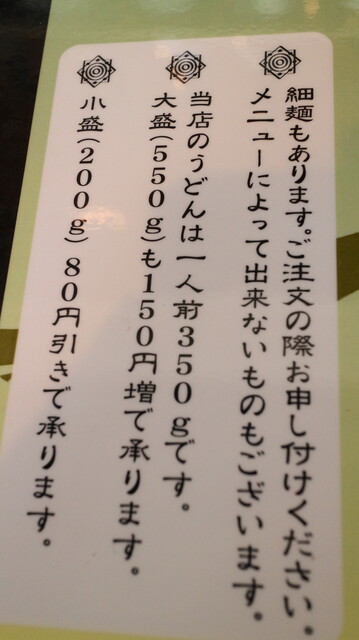 細麺もあります。ご注文の際お申し付けください。
メニューによって出来ないものもございます。
当店のうどんは一人前350gです。
大盛(550g)も150円増で承ります。
小盛(200g)80円引きで承ります。